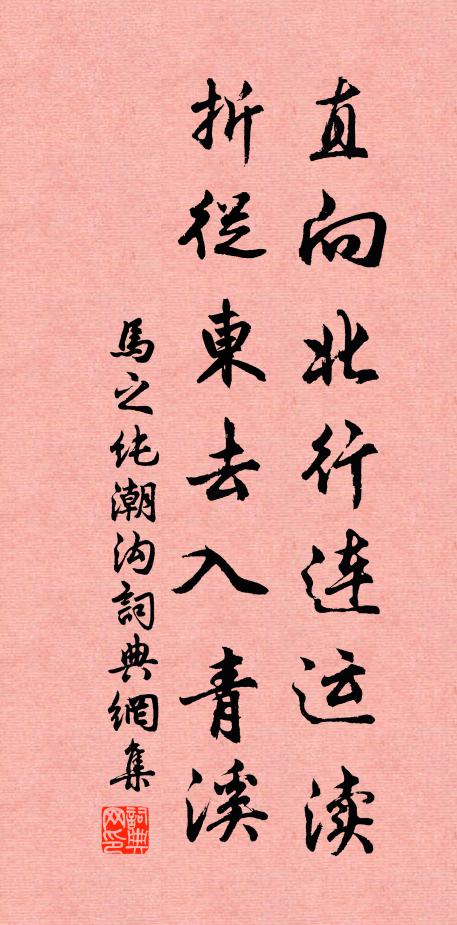 直向北行连运渎
折從東去入青溪
馬之纯潮沟詞典網集
詞典网印